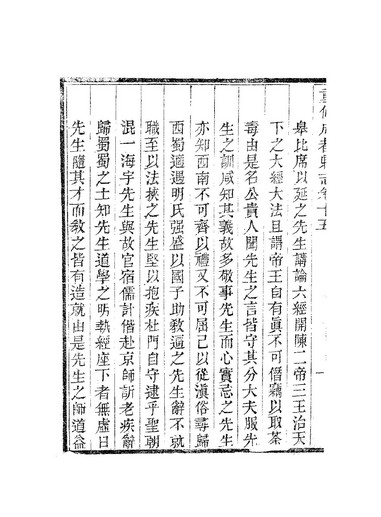 重修成都縣志卷十五
皋比席以延之先生講論六經開陳二帝三王治天
下之大經大法且謂帝王自有真不可僭竊以取荼
毒由是名公貴人聞先生之言皆守其分大夫服先
生之訓咸知其義故多敬事先生而心實忌之先生
亦知西南不可齊以禮又不可屈己以從滇俗尋歸
西蜀適遇明氏强盛以國子助教逼之先生辭不就
職至以法挾之先生堅以抱疾杜門自守逮乎聖朝
混一海宇先生與故官宿儒計偕赴京師訴老疾辭
歸蜀蜀之士知先生道學之明執經座下者無虛日
先生隨其才而教之皆有造就由是先生之師道益